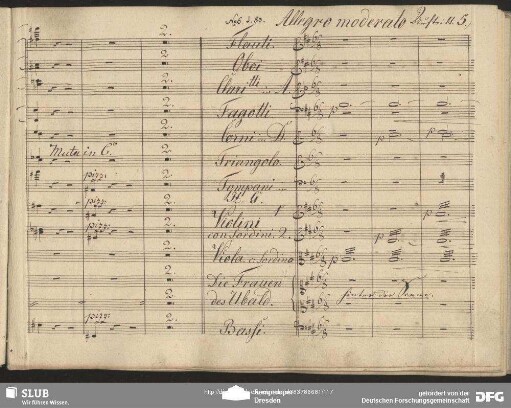 Allegro moderato
Flauti.
Oboi
Claritti in A.
Fagotti
Corni in D.
Muta in C.
Triangolo.
Tympani in
pizz:
Violini 1º
con Sordini. 2.
pizz:
pizz:
Viola c. Sordino
Die Frauen
des Ubald.
hinter der Scene.
Bassi.
pizz:
SLUB
Wir führen Wissen.
Dresden
gefördert von der
Deutschen Forschungsgemeinschaft
DFG